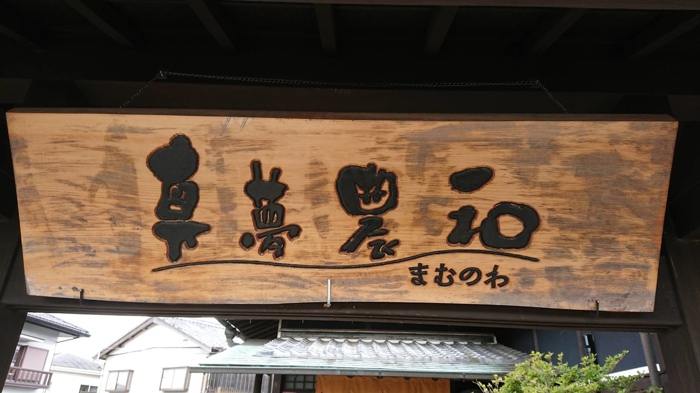 真夢農和
まむのわ